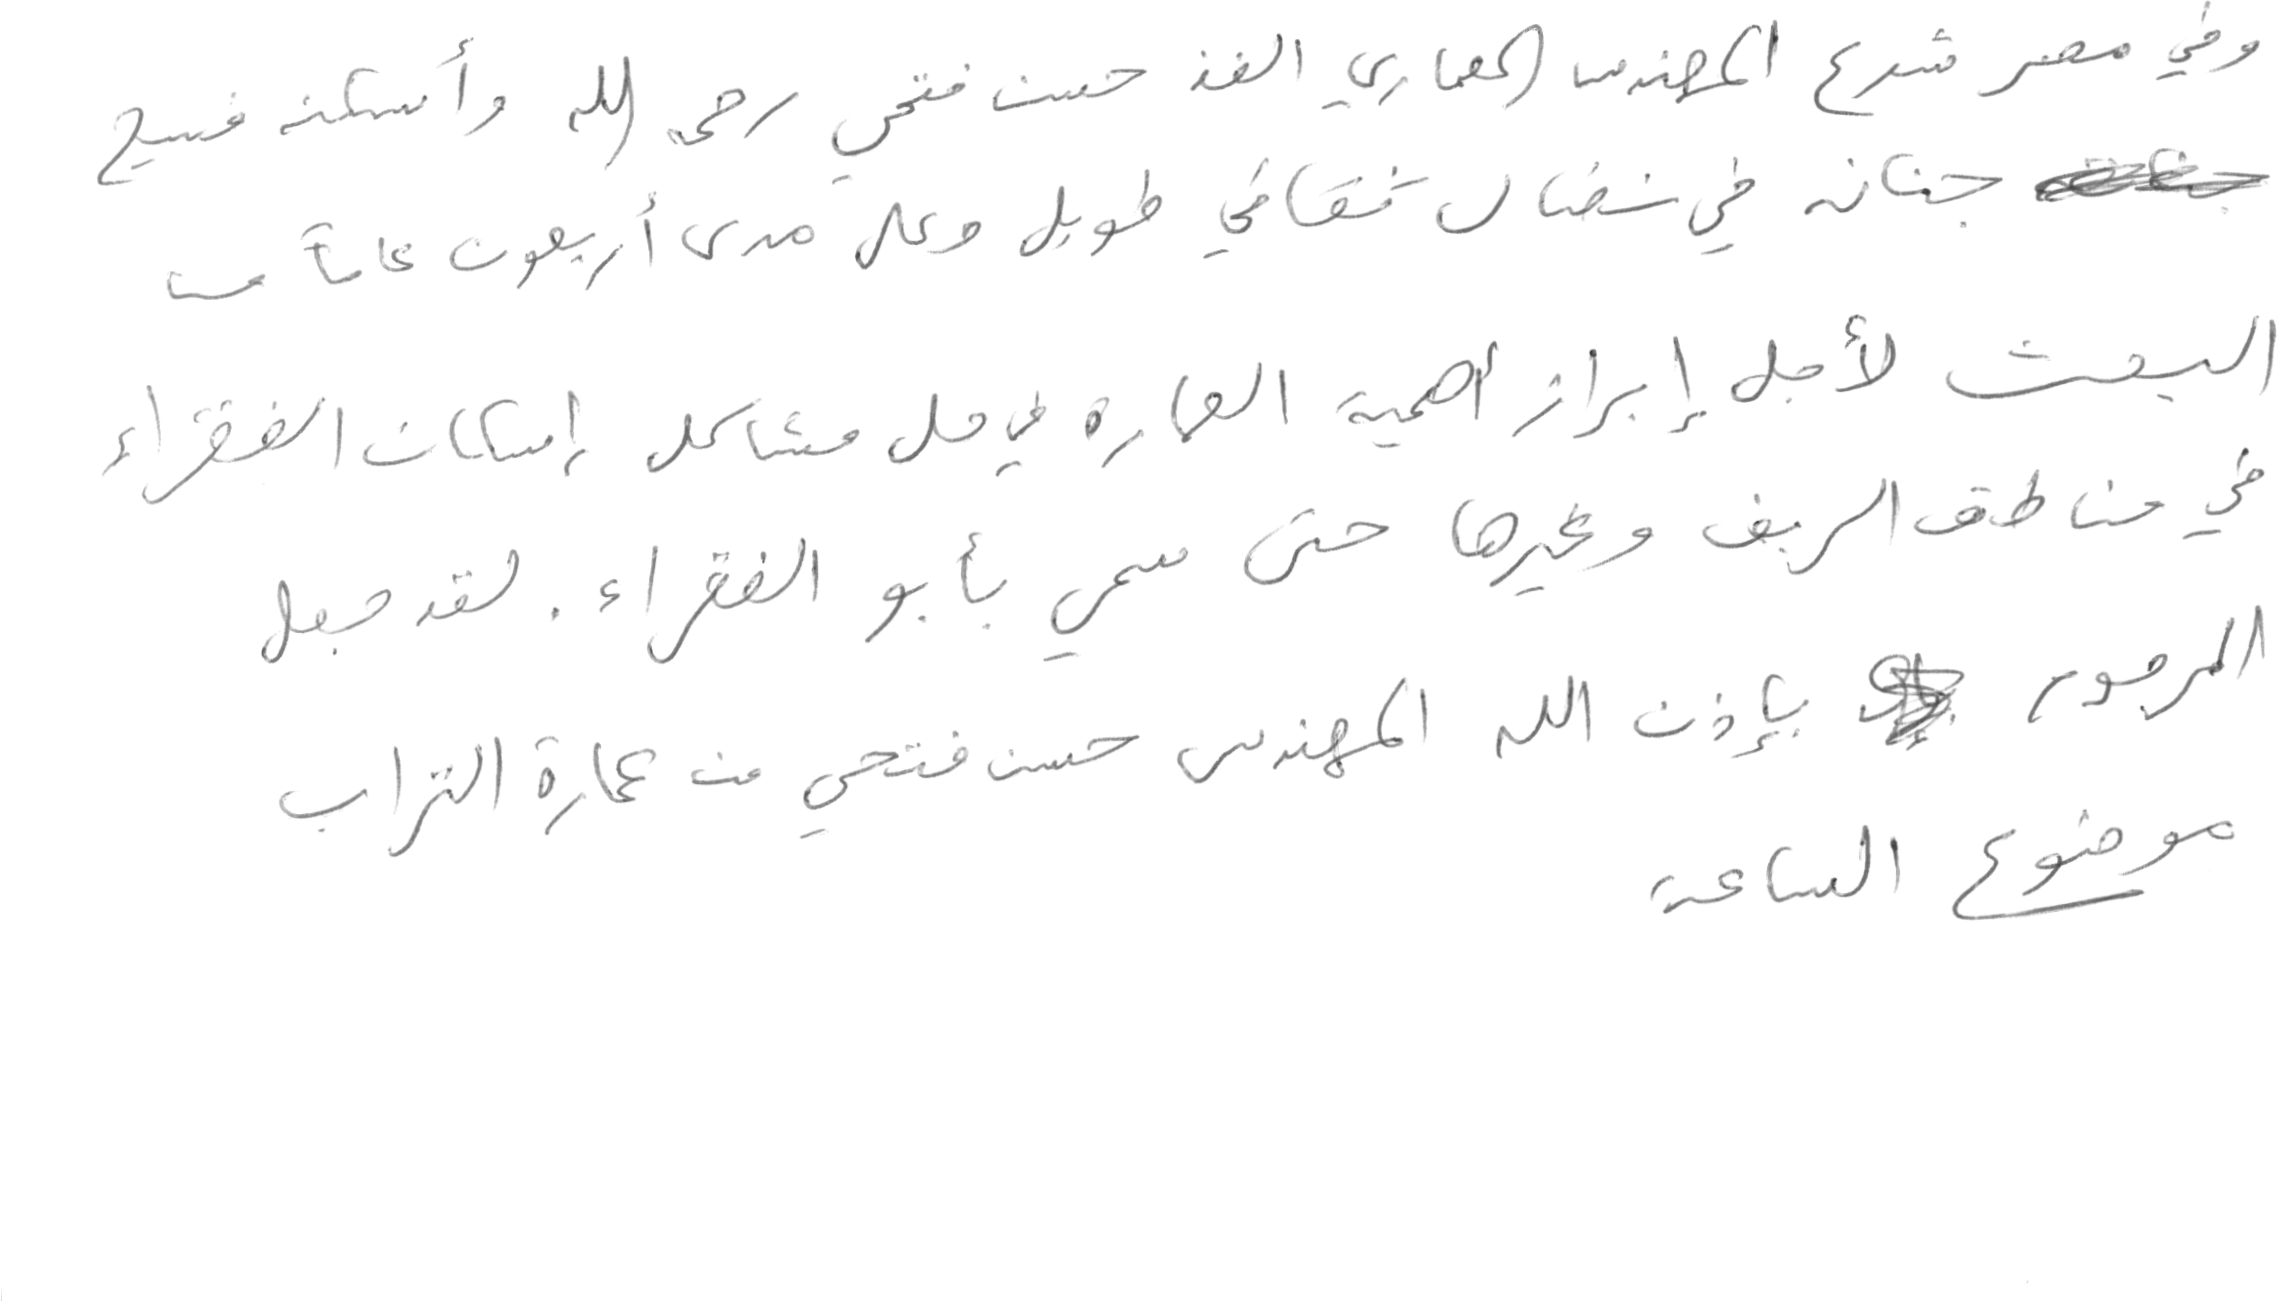 وفي مصر شرع المهندس المعماري الفذ حسن فتحي رحمه الله وأسكنه فسيح
جنانه في نضال ثقافي طويل وعلى مدى أربعون عاماً من
البحث لأجل إبراز أهمية العماره في حل مشاكل إسكان الفقراء
في مناطق الريف وغيرها حتى سمي بأبو الفقراء. لقد جعل
المرحوم بإذن الله المهندس حسن فتحي من عمارة التراب
موضوع الساعة